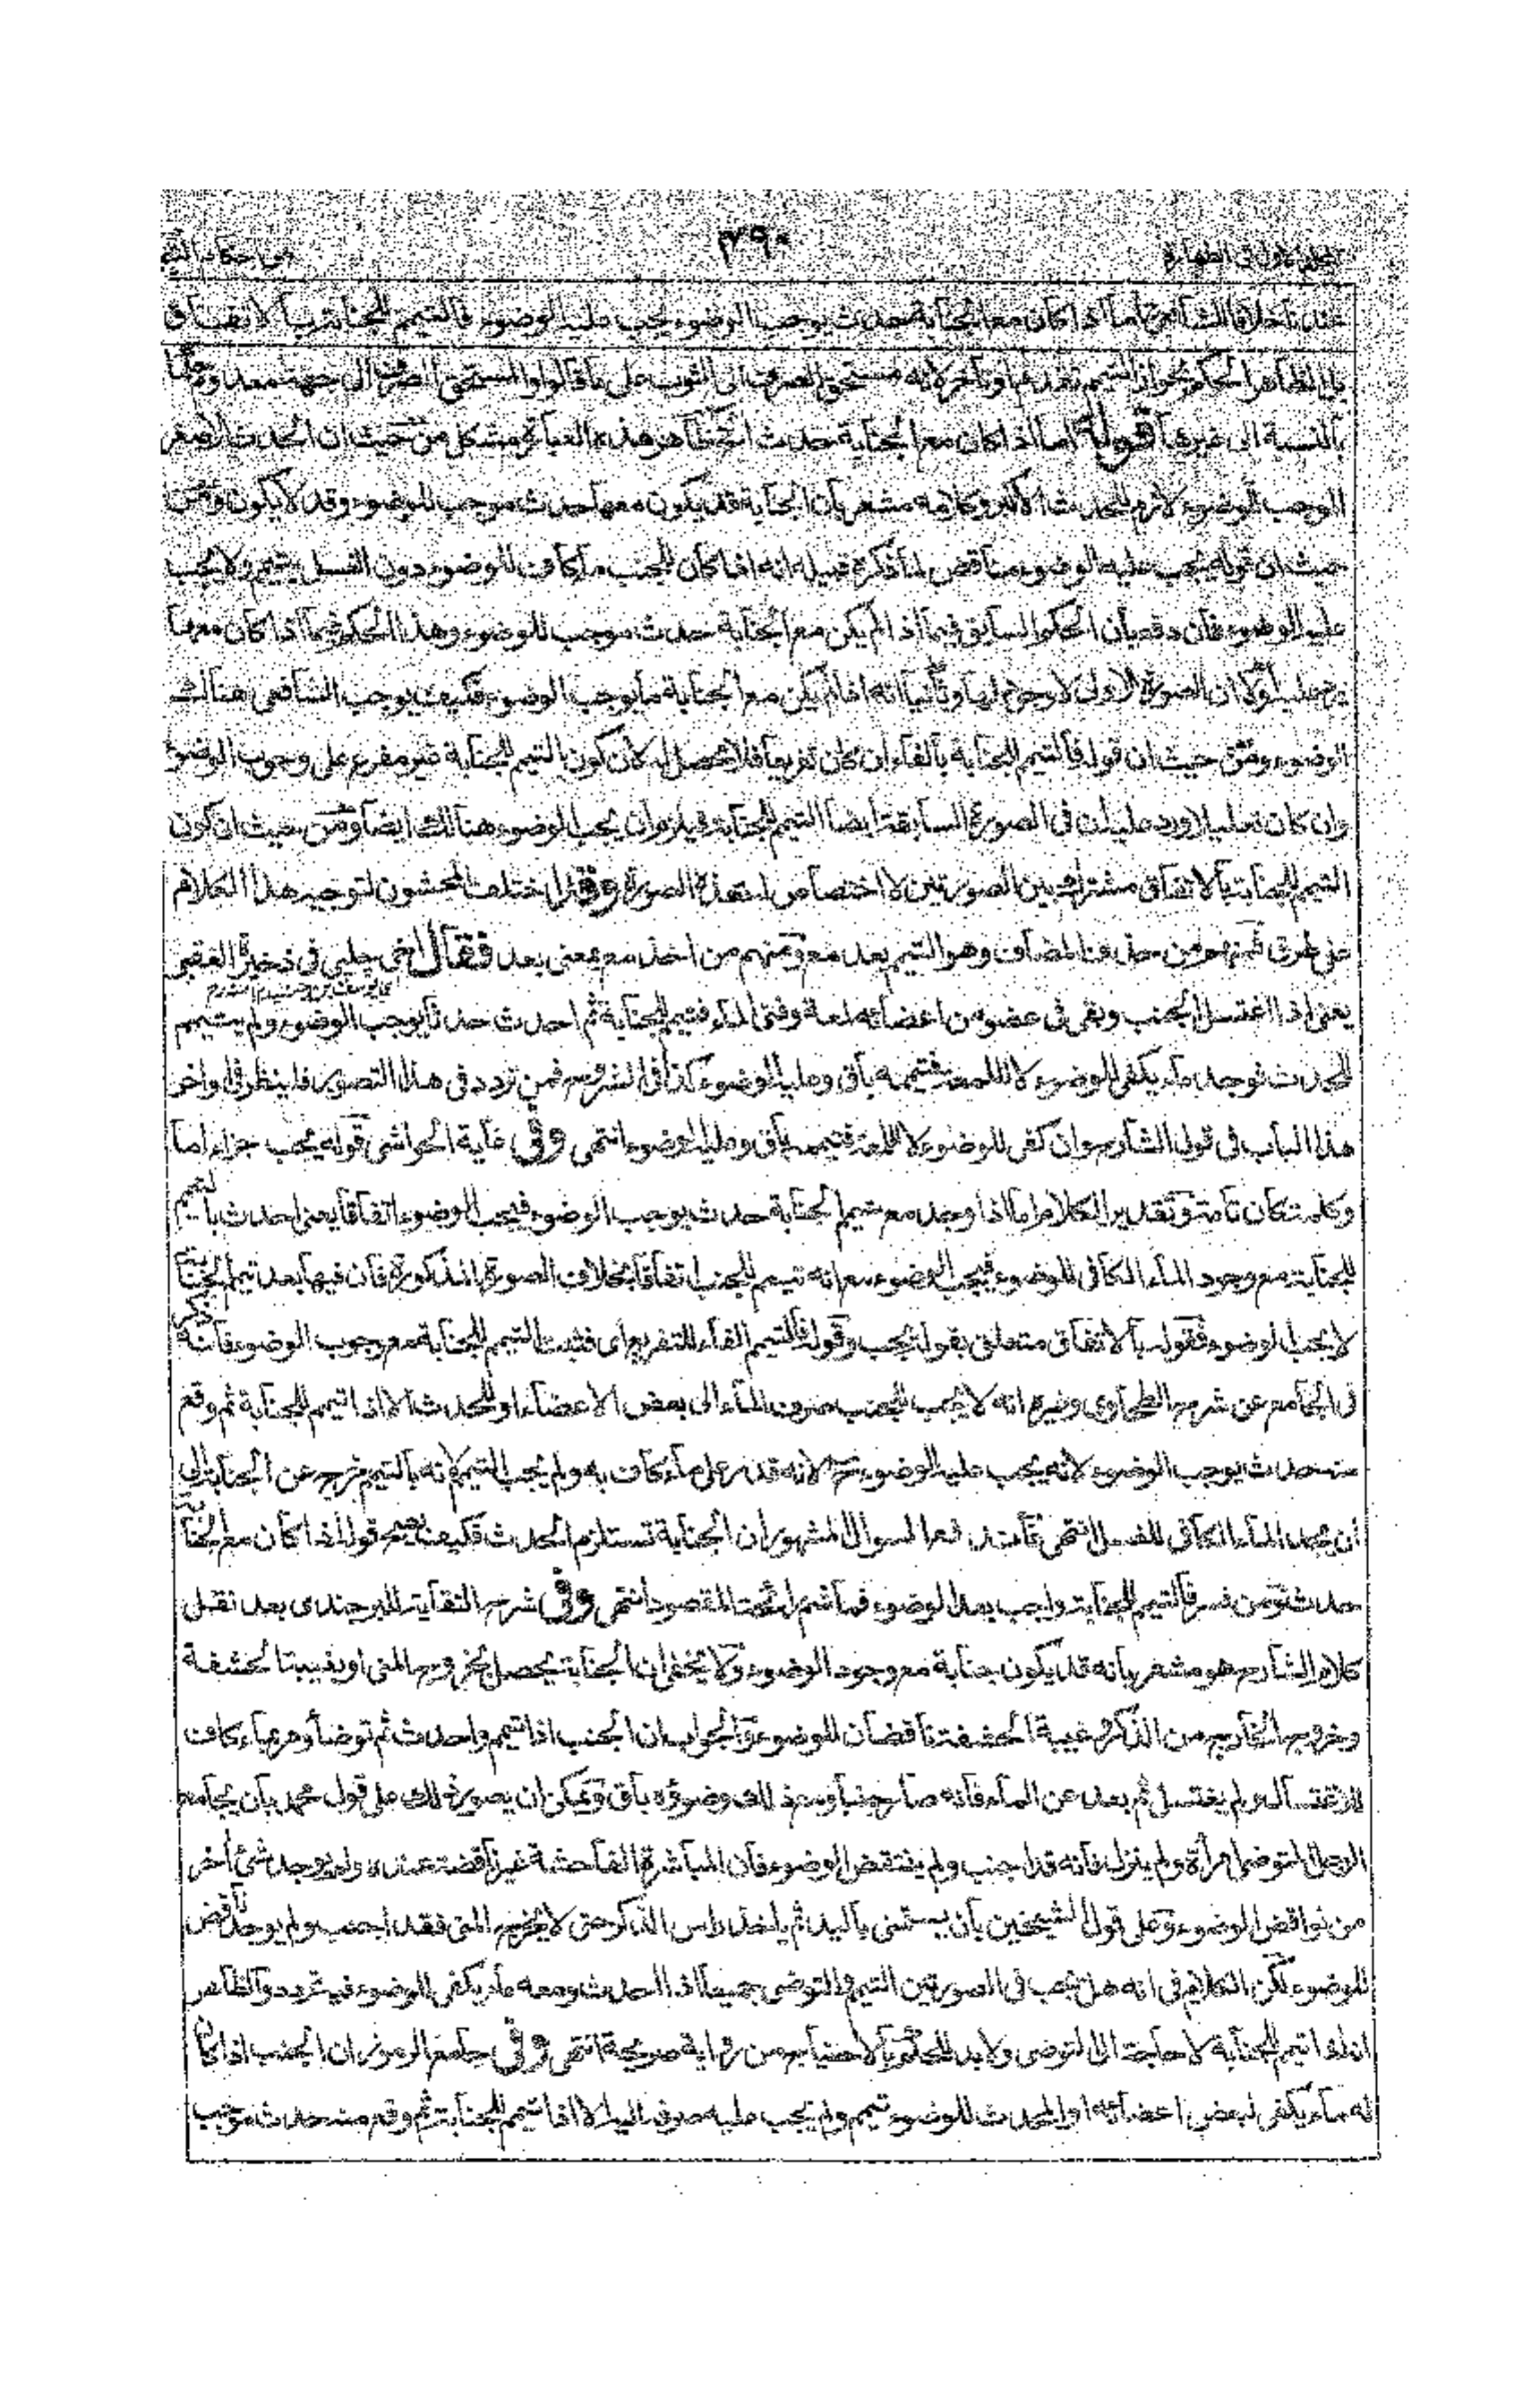 ٤٩٠
عندنا خلافا للشافعي اما اذا كان مع الجنابة حدث يوجب الوضوء يجب عليه الوضوء فالتيمم للجنابة بالاتفاق
بل الظاهر الحكم بجواز التيمم تقدم او تأخر لانه مستحق الصرف الى الثوب على ما قالوا والمستحق الصرف الى جهة معدوم حكما
بالنسبة الى غيرها قوله اما اذا كان مع الجنابة حدث الخ ظاهر هذه العبارة مشكل من حيث ان الحدث الاصغر
الموجب للوضوء لازم للحدث الاكبر وكلامه مشعر بان الجنابة قد يكون معها حدث موجب للوضوء وقد لا يكون ومن
حيث ان قوله يجب عليه الوضوء مناقض لما ذكره قبيله انه اذا كان للجنب ماء كاف للوضوء دون الغسل يتيمم ولا يجب
عليه الوضوء فان دفع بان الحكم السابق فيما اذا لم يكن مع الجنابة حدث موجب للوضوء وهذا الحكم فيما اذا كان معها
يرد عليه اولا ان الصورة الاولى لا وجود لها وثانيا انه اذا لم يكن مع الجنابة ما يوجب الوضوء فكيف يوجب الشافعي هنالك
الوضوء ومن حيث ان قوله فالتيمم للجنابة بالفاء ان كان تفريعا فلا محصل له لان كون التيمم للجنابة غير مفرع على وجوب الوضوء
وان كان تعليلا ورد عليه ان في الصورة السابقة ايضا التيمم للجنابة فيلزم ان يجب الوضوء هنالك ايضا ومن حيث ان كون
التيمم للجنابة بالاتفاق مشترك بين الصورتين لا اختصاص له بهذه الصورة وقد اختلف المحشون لتوجيه هذا الكلام
على طرق فمنهم من حذف المضاف وهو التيمم بعد مع ومنهم من اخذ مع بمعنى بعد فقال اخي چلپي في ذخيرة العقبى
يعني اذا اغتسل الجنب وبقي في عضو من اعضائه لمعة وفنى الماء فتيمم للجنابة ثم احدث حدثا يوجب الوضوء ولم يتيمم
للحدث فوجد ماء يكفي للوضوء لا للمعة فتيممه باق وعليه الوضوء كذا في الشروح فمن تردد في هذا التصوير فلينظر في اواخر
هذا الباب في قول الشارح وان كفى للوضوء لا للمعة فتيممه باق وعليه الوضوء انتهى وفي غاية الحواشي قوله يجب جزاء اما
وكلمة كان تامة وتقدير الكلام اما اذا وجد مع تيمم الجنابة حدث يوجب الوضوء فيجب الوضوء اتفاقا يعني احدث بالتيمم
للجنابة مع وجود الماء الكافي للوضوء فيجب الوضوء مع انه تيمم للجنب اتفاقا بخلاف الصورة المذكورة فان فيها بعد تيمم الجنابة
لا يجب الوضوء فقوله بالاتفاق متعلق بقوله يجب وقوله فالتيمم الفاء للتفريع اي فثبت التيمم للجنابة مع وجوب الوضوء فانه ذكر
في الجامع عن شرح الطحاوي وغيره انه لا يجب للجنب صرف الماء الى بعض الاعضاء او للحدث الا اذا تيمم للجنابة ثم وقع
منه حدث يوجب الوضوء لانه يجب عليه الوضوء لانه قدر على ماء كاف به ولم يجب التيمم لانه بالتيمم خرج عن الجنابة الى
ان يجد الماء الكافي للغسل انتهى فاندفع السوال المشهور ان الجنابة تستلزم الحدث فكيف يصح قوله اذا كان مع الجنابة
حدث ومن فسر فالتيمم للجنابة واجب بعد الوضوء فما شم رائحة المقصود انتهى وفي شرح النقاية للبرجندي بعد نقل
كلام الشارح هو مشعر بانه قد يكون جنابة مع وجود الوضوء ولا يخفى ان الجنابة يحصل بخروج المني او بغيبة الحشفة
وخروج الخارج من الذكر وغيبة الحشفة ناقضان للوضوء والجواب ان الجنب اذا تيمم واحدث ثم توضأ ومر بماء كاف
للاغتسال ولم يغتسل ثم بعد عن الماء فانه صار جنبا ومع ذلك وضوؤه باق ويمكن ان يصور ذلك على قول محمد بان يجامع
الرجل المتوضي امرأة ولم ينزل فانه قد اجنب ولم ينتقض الوضوء فان المباشرة الفاحشة غير ناقضة عنده ولم يوجد شئ آخر
من نواقض الوضوء وعلى قول الشيخين بان يستمني باليد ثم ياخذ راس الذكر حتى لا يخرج المني فقد اجنب ولم يوجد ناقض
للوضوء لكن الكلام في انه هل يجب في الصورتين التيمم والتوضي جميعا اذا احدث ومعه ماء يكفي للوضوء فيه تردد والظاهر
انه اذا تيمم للجنابة لا حاجة الى التوضي ولا بد للحكم بالاحتياج من رواية صريحة انتهى وفي جامع الرموز ان الجنب اذا كان
له ماء يكفي لبعض اعضائه او للحدث للوضوء تيمم ولم يجب عليه صرفه اليه الا اذا تيمم للجنابة ثم وقع منه حدث موجب